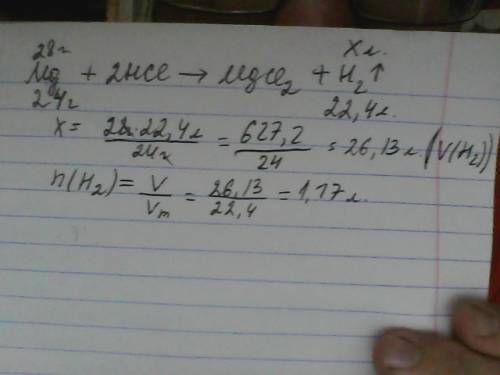 28г xл.
Mg + 2HCl → MgCl₂ + H₂↑
24г 22,4л.
x = 28г·22,4л / 24г = 627,2 / 24 = 26,13л. (V(H₂))
n(H₂) = V / Vm = 26,13 / 22,4 = 1,17л.